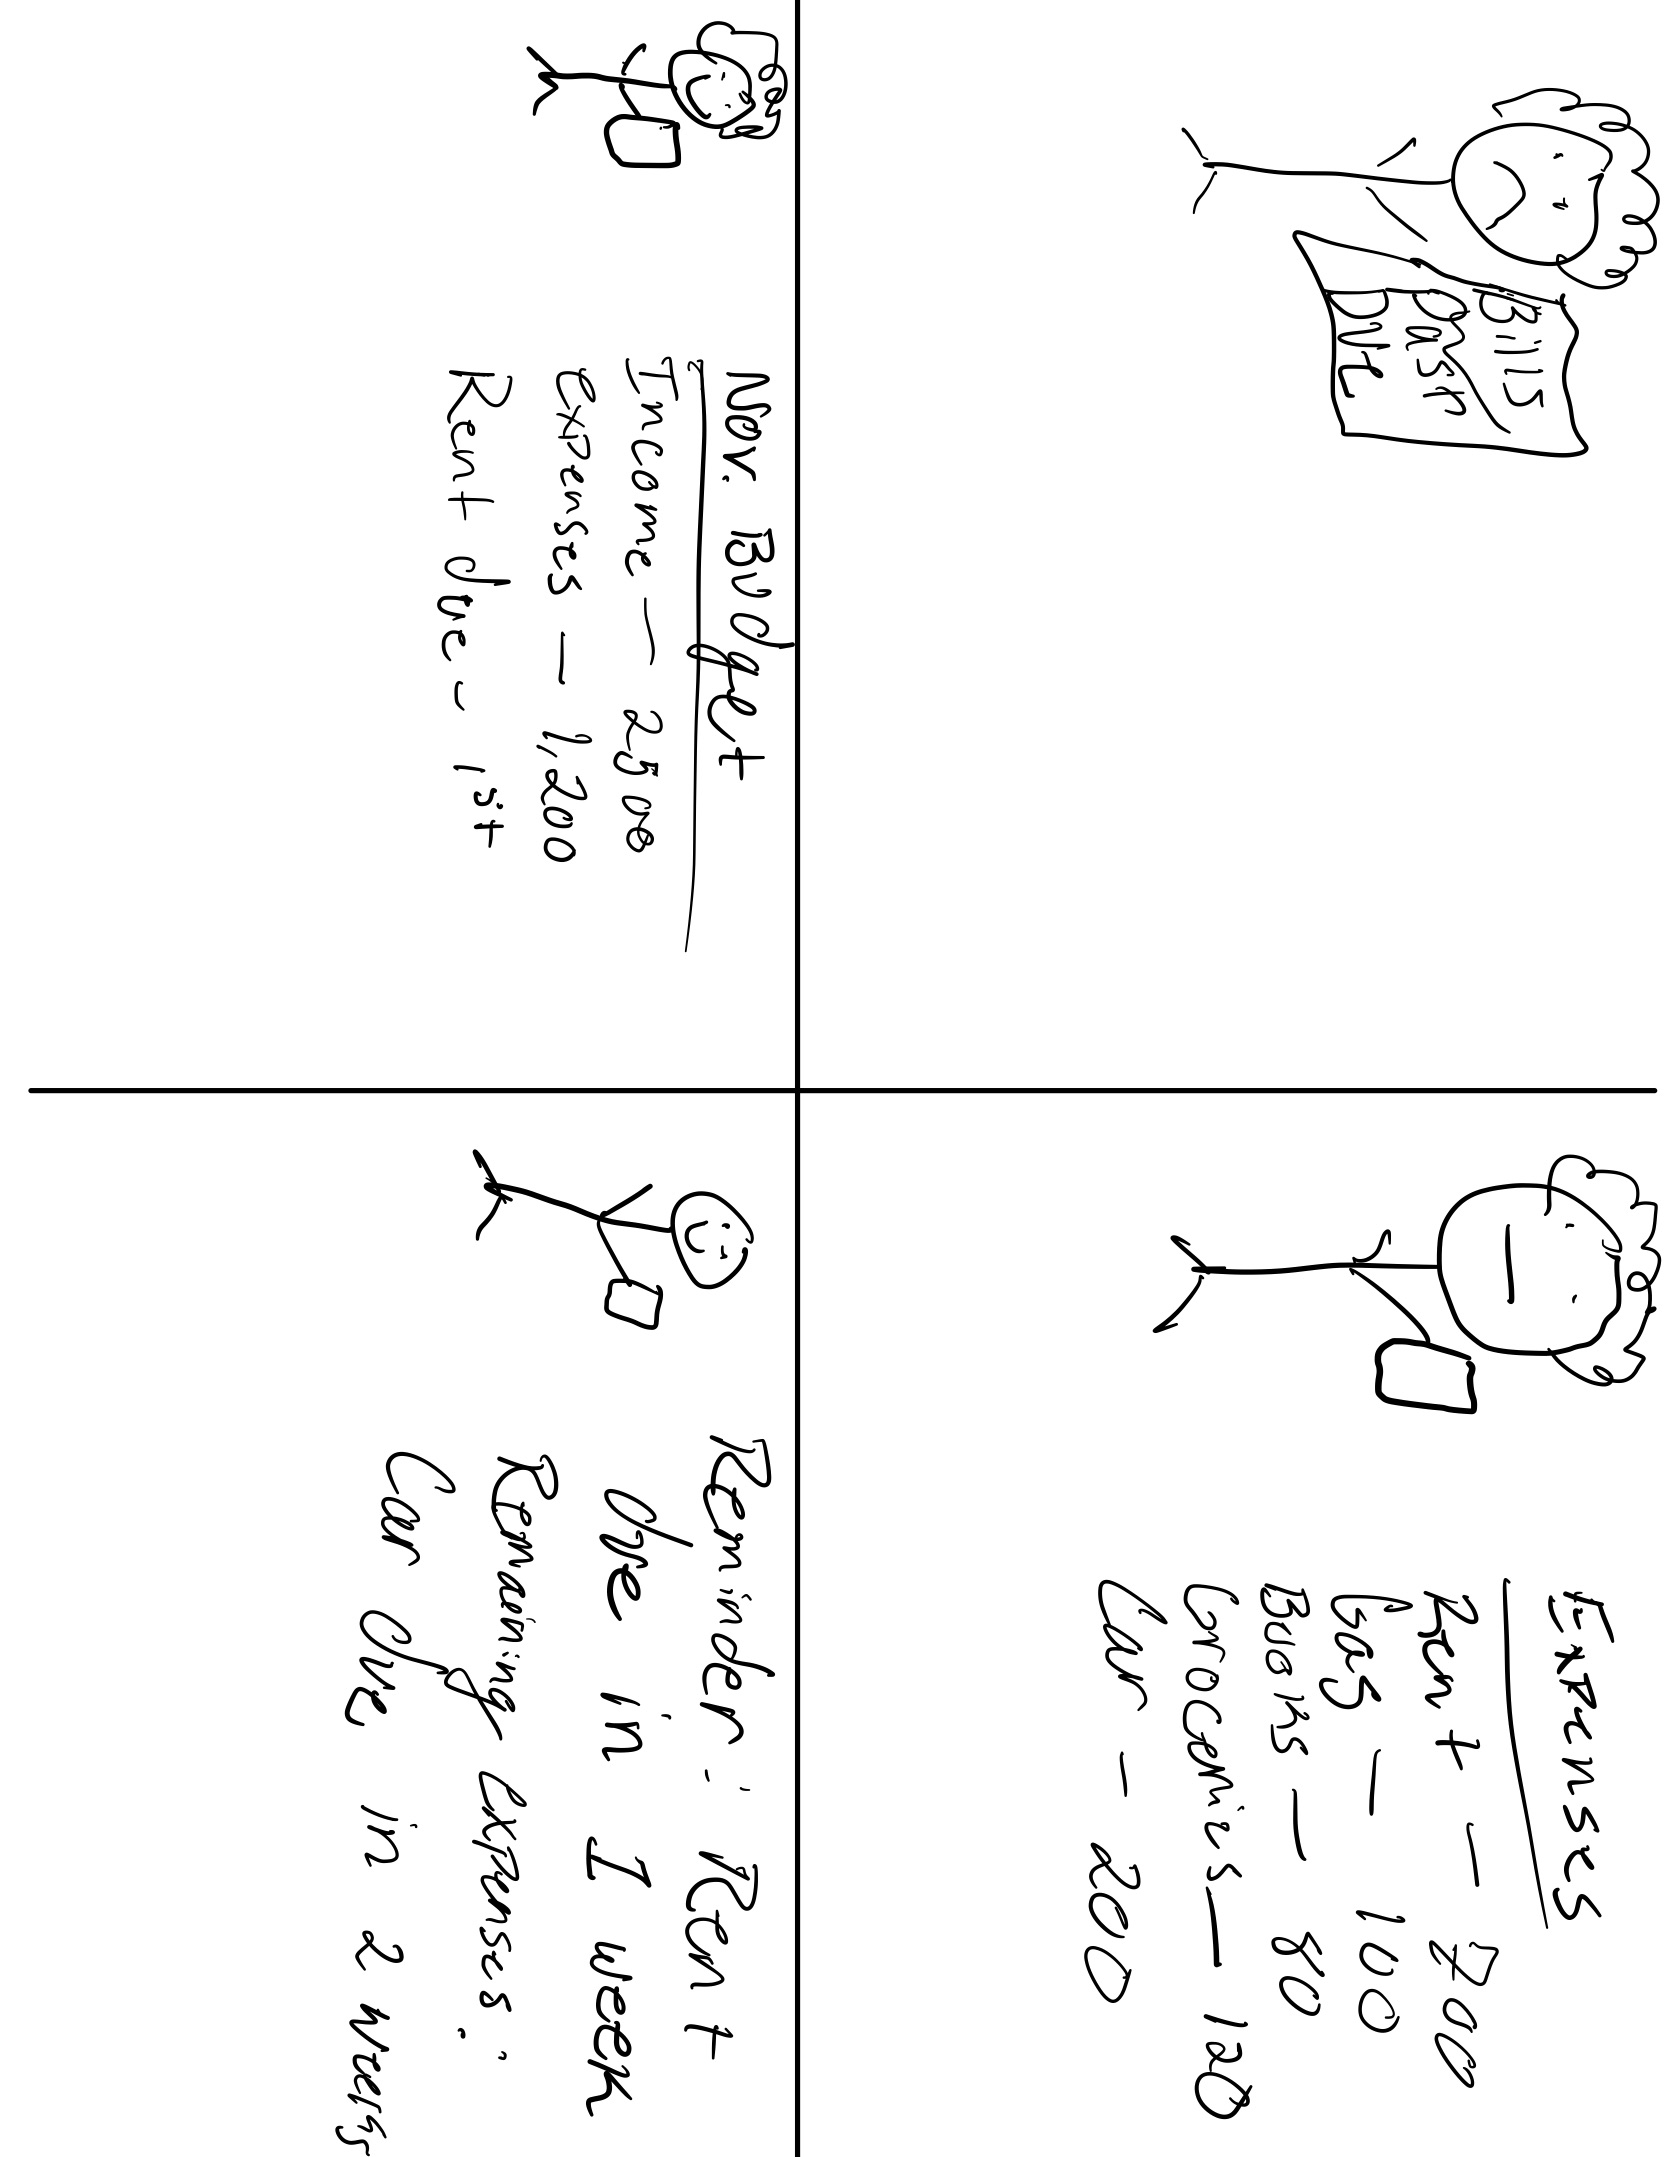 Bills
Past
Due
Expenses
Rent — 700
Gas — 100
Books — 80
Groceries — 120
Car — 200
Nov. Budget
Income — 2500
expenses — 1,200
Rent due - 1st
Reminder: Rent
due in 1 week
Remaining expenses:
Car due in 2 weeks